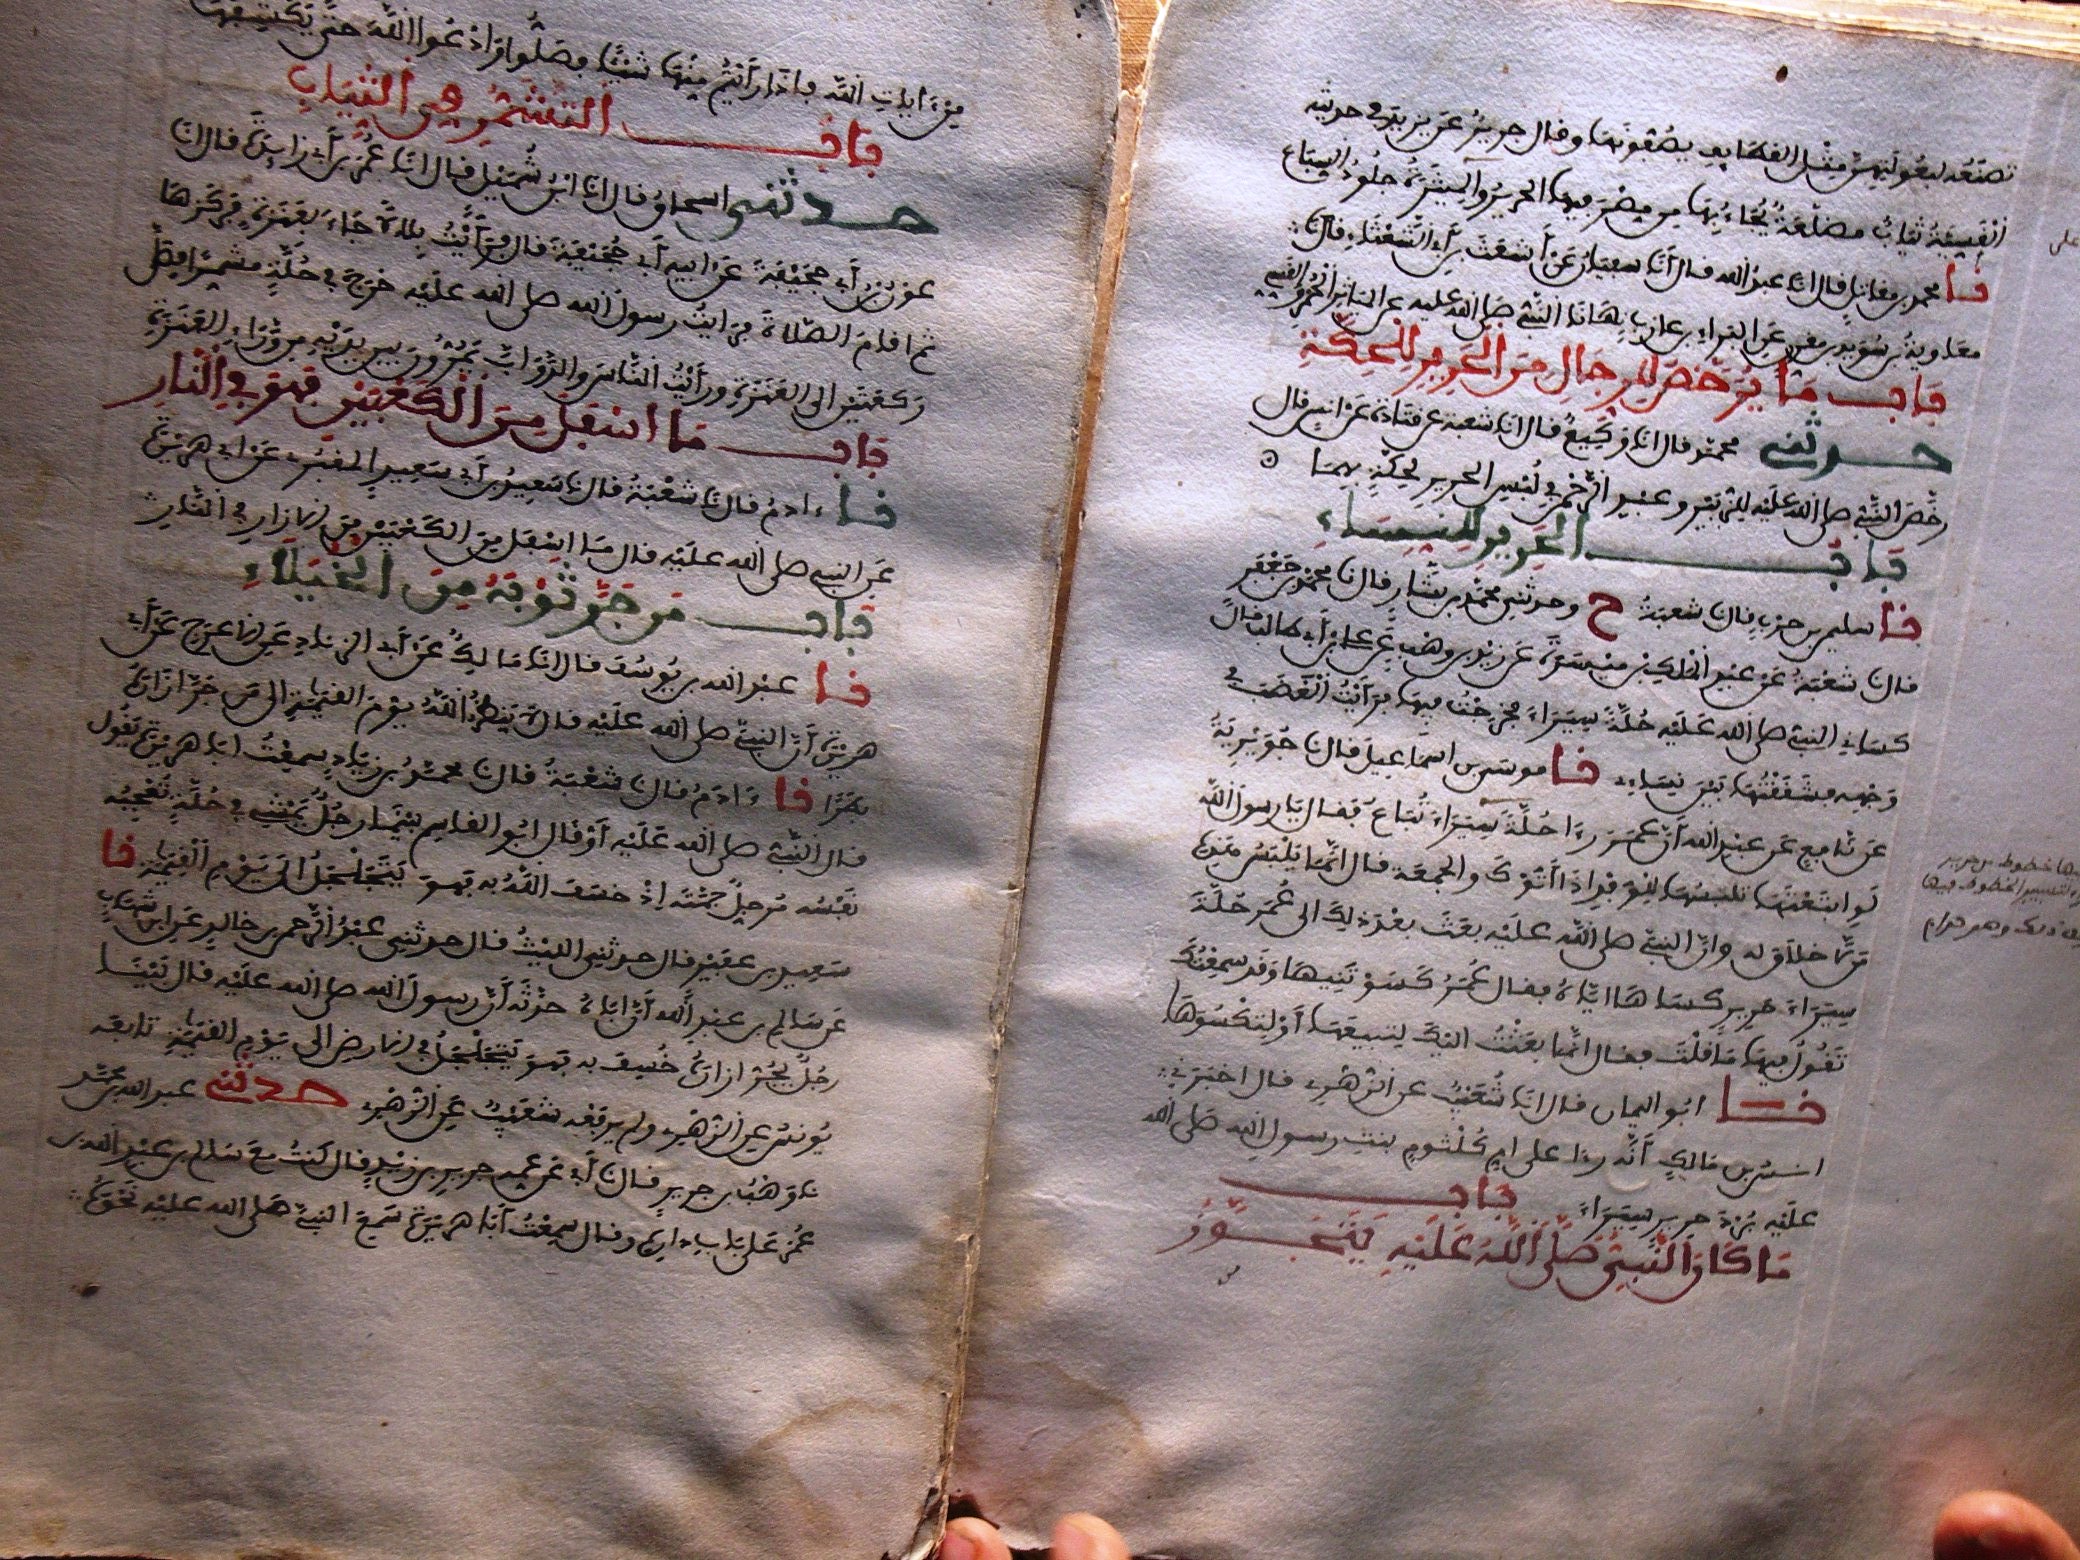 تصنعه لبعولتهن مثل القطايف يصفونها وقال جرير عن يزيد في حديثه
القسية ثياب مضلعة يجاء بها من مصر فيها الحرير والميثرة جلود السباع
نا محمد بن مقاتل قال انا عبد الله قال انا سفيان عن أشعث بن أبي الشعثاء قال نا
معاوية بن سويد بن مقرن عن البراء بن عازب نهانا النبي صلى الله عليه عن المياثر الحمر والقسي
باب ما يرخص للرجال من الحرير للحكة
حدثني محمد قال انا وكيع قال انا شعبة عن قتادة عن انس قال
رخص النبي صلى الله عليه للزبير وعبد الرحمن في لبس الحرير لحكة بهما
باب الحرير للنساء
نا سليمن بن حرب قال نا شعبة ح وحدثني محمد بن بشار قال نا محمد بن جعفر
قال نا شعبة عن عبد الملك بن ميسرة عن زيد بن وهب عن علي بن أبي طالب قال
كساني النبي صلى الله عليه حلة سيراء فخرجت فيها فرأيت الغضب في
وجهه فشققتها بين نسايي نا موسى بن اسماعيل قال نا جويرية
عن نافع عن عبد الله أن عمر رءا حلة سيراء تباع فقال يا رسول الله
لو ابتعتها تلبسها للوفد اذا أتوك والجمعة قال انما يلبس هذه
من لا خلاق له وان النبي صلى الله عليه بعث بعد ذلك الى عمر حلة
سيراء حرير كساها اياه فقال عمر كسوتنيها وقد سمعتك
تقول فيها ما قلت فقال انما بعثت اليك لتبيعها أو لتكسوها
نا ابو اليمان قال انا شعيب عن الزهري قال اخبرني
انس بن مالك أنه رءا على ام كلثوم بنت رسول الله صلى الله
عليه برد حرير سيراء باب
ما كان النبي صلى الله عليه يتجوز
من ءايات الله فاذا رأيتم منها شيئا فصلوا وادعوا الله حتى يكشفها
باب التشمر في الثياب
حدثني اسحاق قال انا ابن شميل قال انا عمر بن أبي زايدة قال انا
عون بن أبي جحيفة عن ابيه أبي جحيفة قال فرأيت بلالا جاء بعنزة فركزها
ثم اقام الصلاة فرايت رسول الله صلى الله عليه خرج في حلة مشمرا فصلى
ركعتين الى العنزة ورأيت الناس والدواب يمرون بين يديه من وراء العنزة
باب ما اسفل من الكعبين فهو في النار
نا ءادم قال نا شعبة قال نا سعيد بن أبي سعيد المقبري عن ابي هريرة
عن النبي صلى الله عليه قال ما اسفل من الكعبين من الازار في النار
باب من جر ثوبه من الخيلاء
نا عبد الله بن يوسف قال انا مالك عن أبي الزناد عن الاعرج عن أبي
هريرة أن النبي صلى الله عليه قال لا ينظر الله يوم القيمة الى من جر ازاره
بطرا نا ءادم قال نا شعبة قال نا محمد بن زياد سمعت ابا هريرة يقول
قال النبي صلى الله عليه أو قال ابو القاسم بينما رجل يمشي في حلة تعجبه
نفسه مرجل جمته اذ خسف الله به فهو يتجلجل الى يوم القيمة نا
سعيد بن عفير قال حدثني الليث قال حدثني عبد الرحمن بن خالد عن ابن شهاب
عن سالم بن عبد الله أن اباه حدثه أن رسول الله صلى الله عليه قال بينا
رجل يجر ازاره خسف به فهو يتجلجل في الارض الى يوم القيمة تابعه
يونس عن الزهري ولم يرفعه شعيب عن الزهري حدثني عبد الله بن محمد
نا وهب بن جرير قال نا أبي عن عمه جرير بن زيد قال كنت مع سالم بن عبد الله بن
عمر على باب داره وقال سمعت أبا هريرة سمع النبي صلى الله عليه نحوه